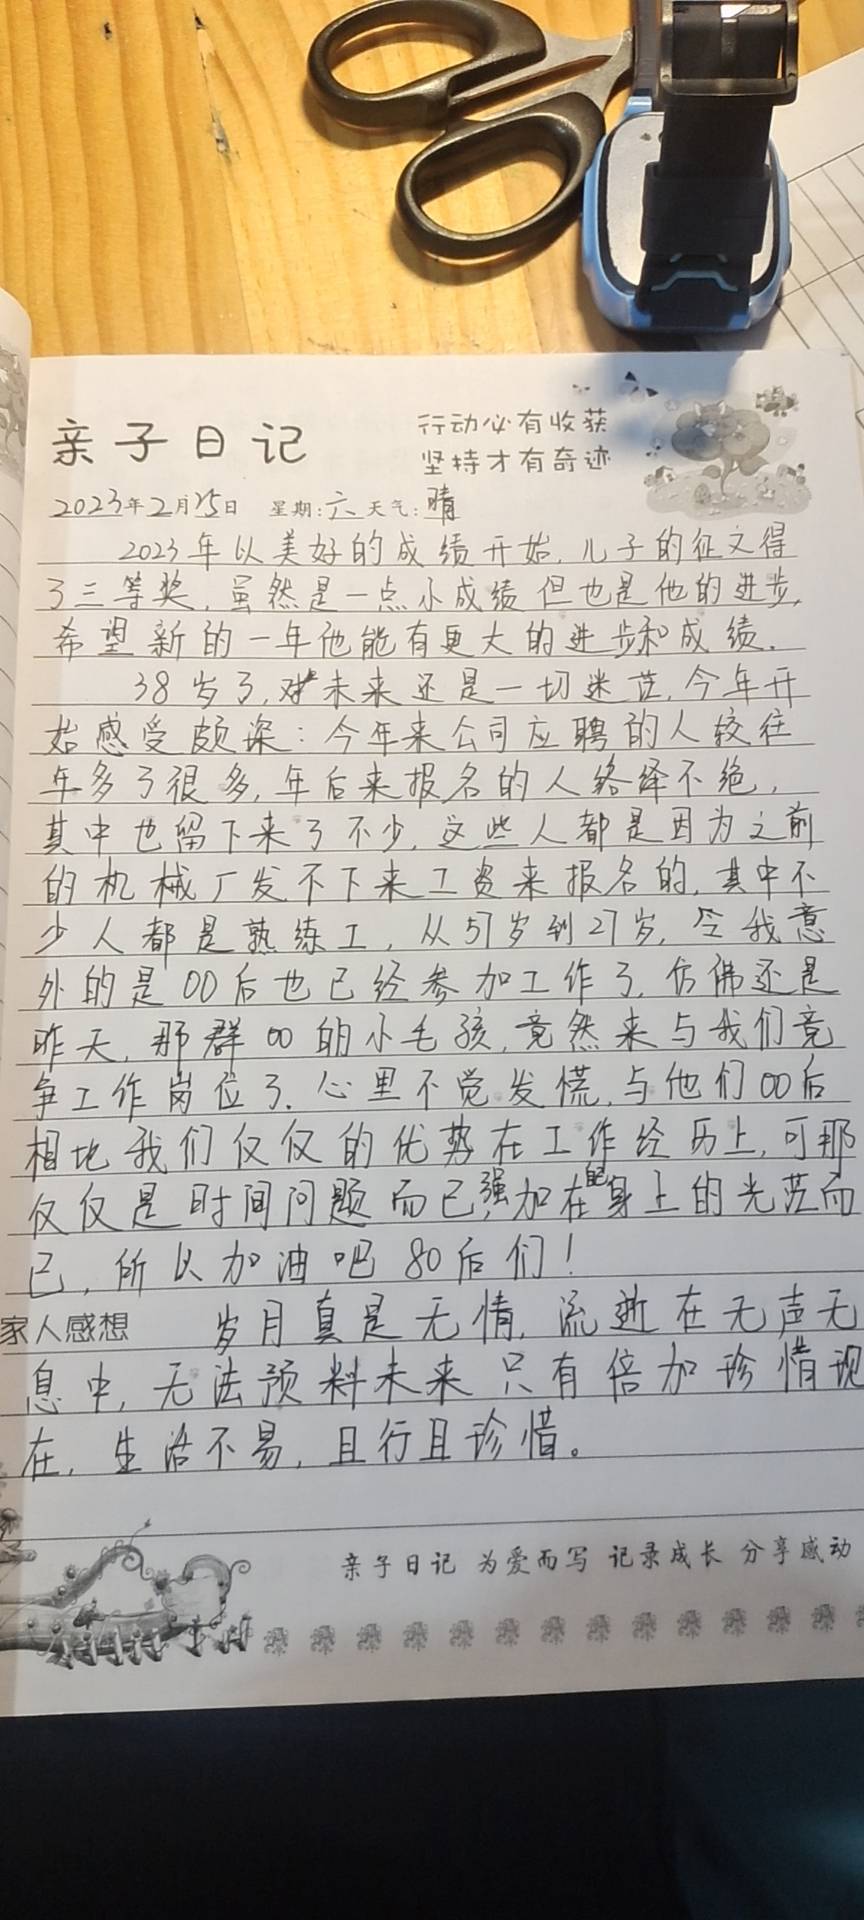 亲子日记
行动必有收获
坚持才有奇迹
2023年2月25日 星期:六 天气:晴
2023年以美好的成绩开始,儿子的征文得
了三等奖,虽然是一点小成绩但也是他的进步,
希望新的一年他能有更大的进步和成绩.
38岁了,对未来还是一切迷茫,今年开
始感受颇深:今年来公司应聘的人较往
年多了很多,年后来报名的人络绎不绝,
其中也留下来了不少,这些人都是因为之前
的机械厂发不下来工资来报名的,其中不
少人都是熟练工,从57岁到27岁,令我意
外的是00后也已经参加工作了,仿佛还是
昨天,那群00的小毛孩,竟然来与我们竞
争工作岗位了.心里不觉发慌,与他们00后
相比我们仅仅的优势在工作经历上,可那
仅仅是时间问题而已,强加在自己身上的光茫而
已,所以加油吧80后们!
家人感想 岁月真是无情,流逝在无声无
息中,无法预料未来只有倍加珍惜现
在,生活不易,且行且珍惜。
亲子日记 为爱而写 记录成长 分享感动